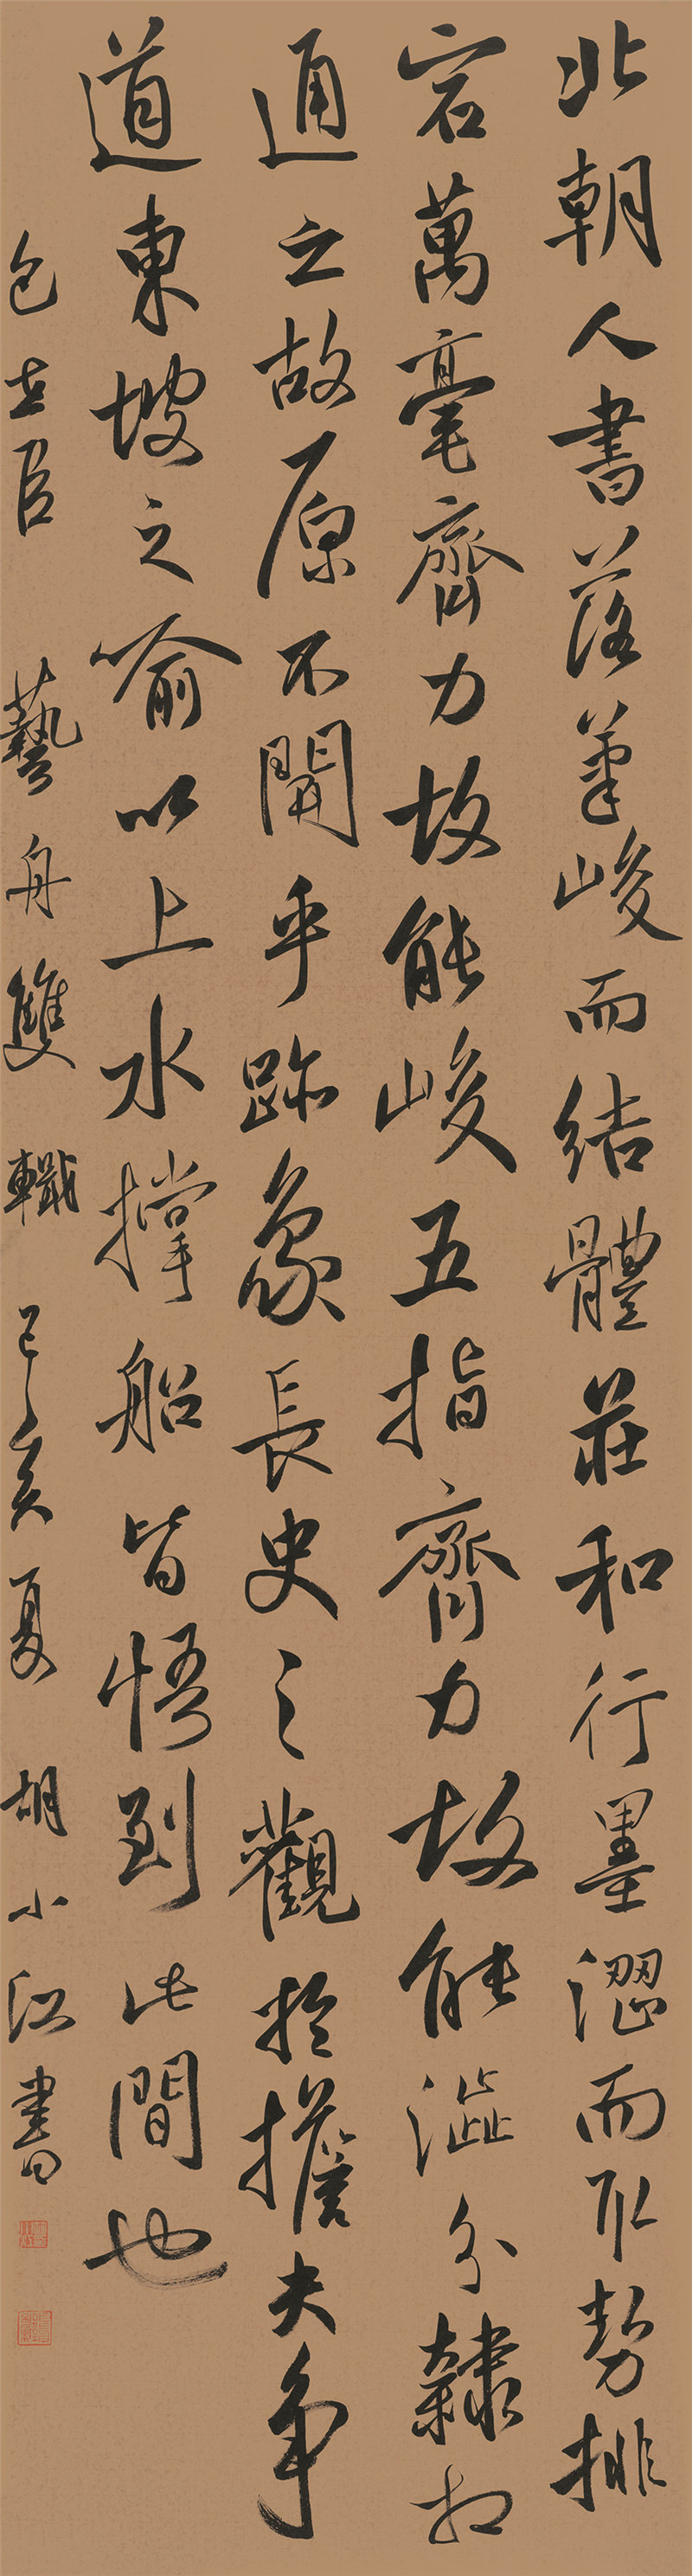 北朝人書落筆峻而結體莊和行墨澀而取勢排
宕萬毫齊力故能峻五指齊力故能澁分隸相
通之故原不關乎跡象長史之觀於擔夫争
道東坡之喻以上水撐船皆悟到此間也
包世臣 藝舟雙轍 己亥夏 胡小江書